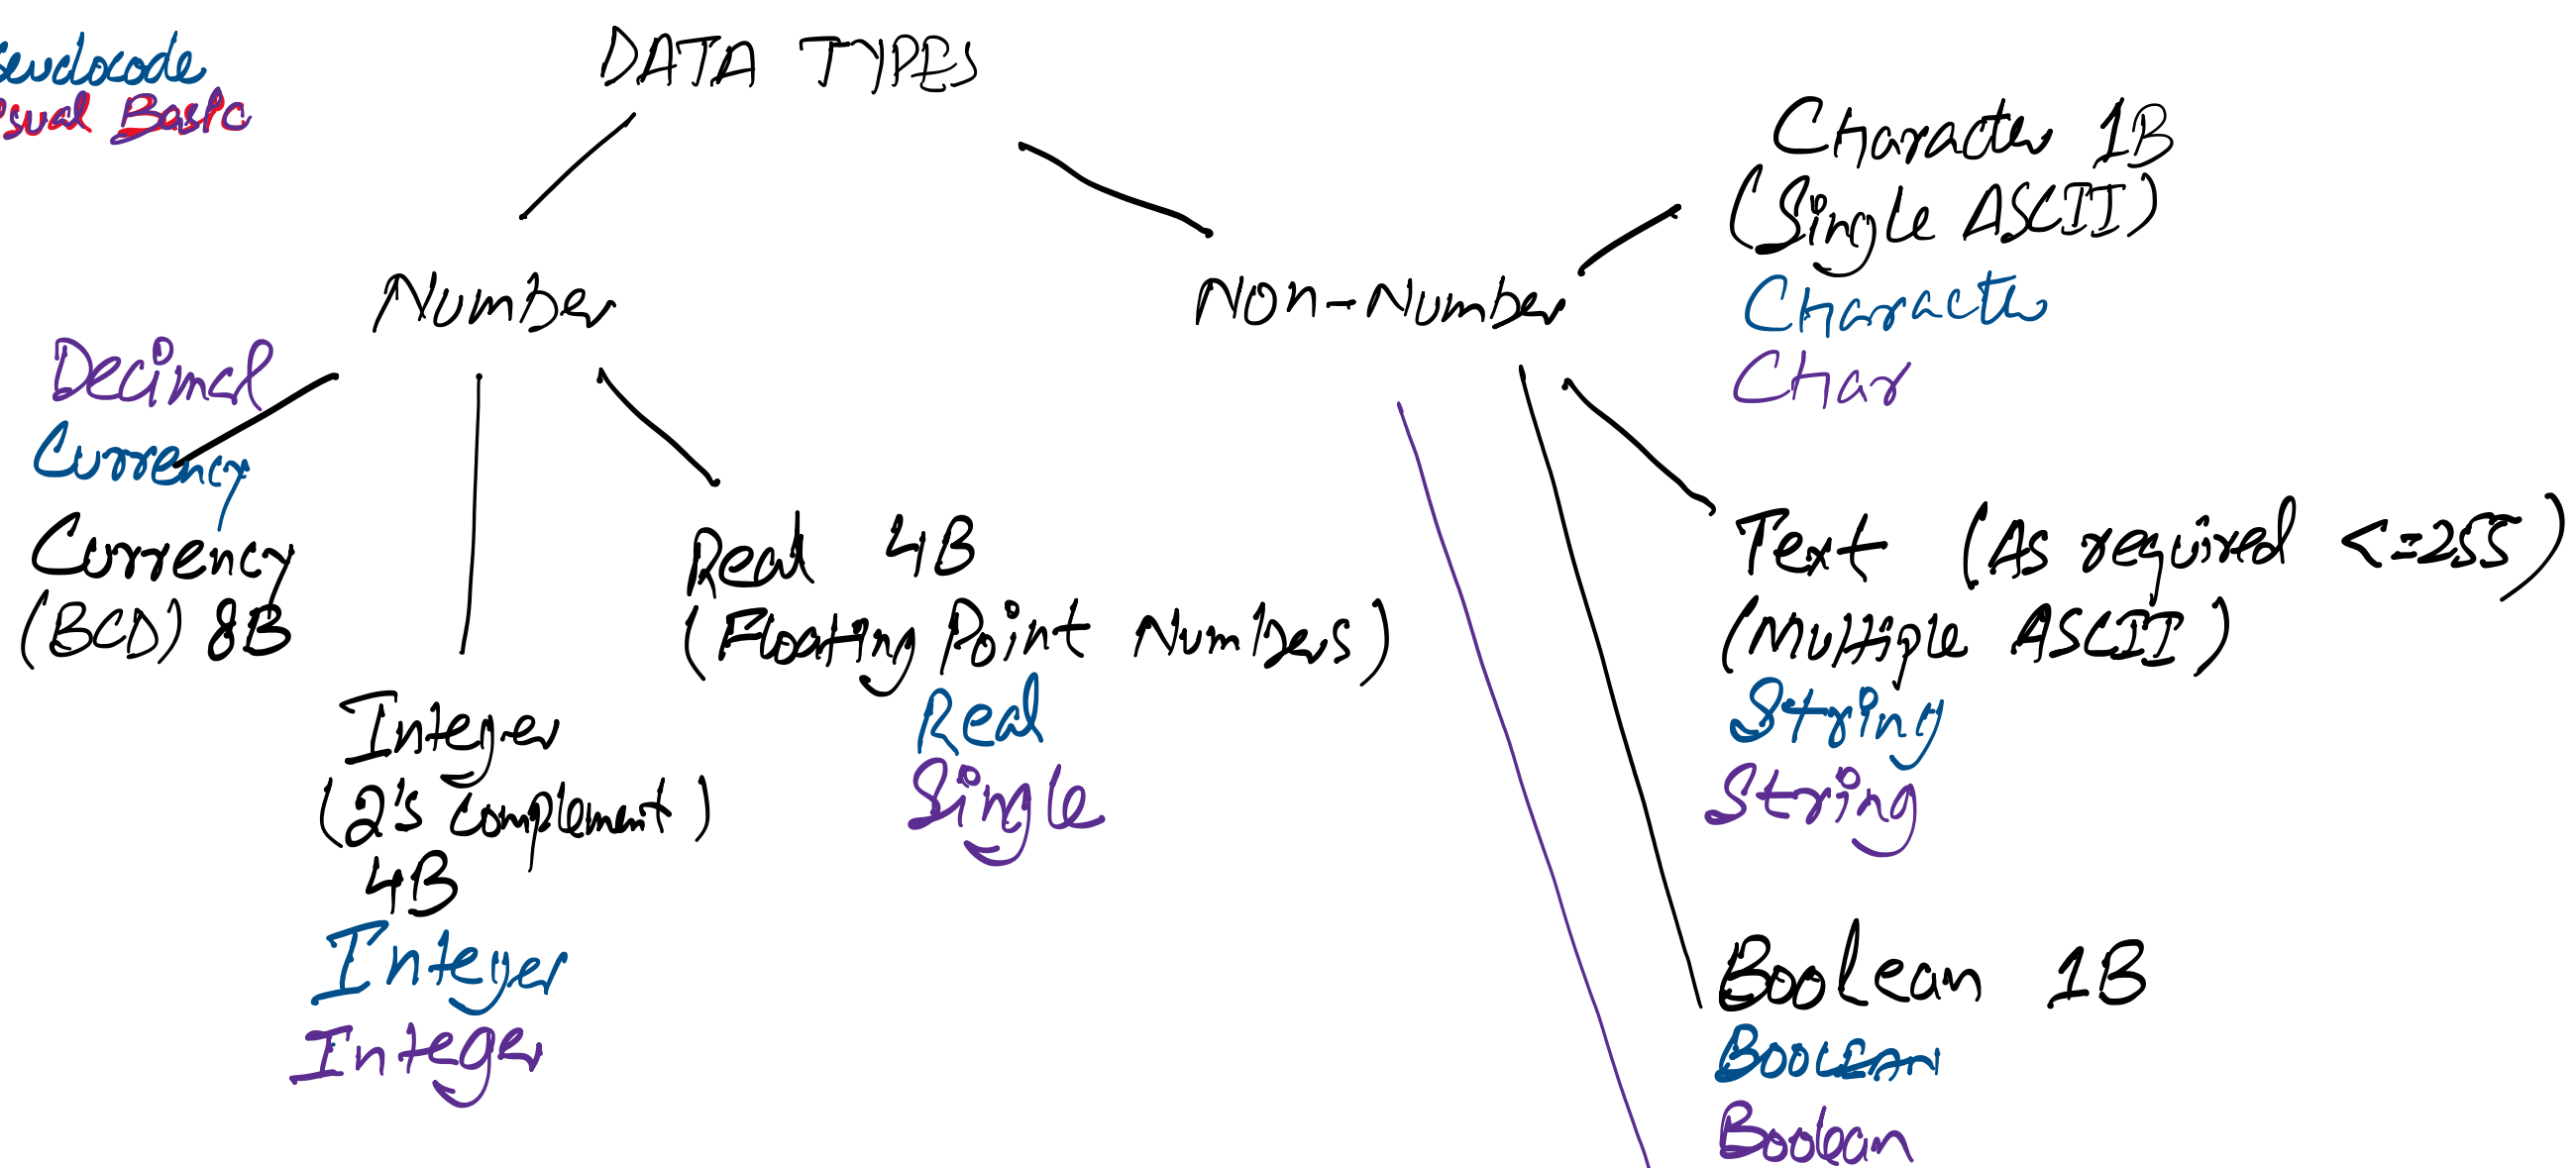 seudocode
sual Basic
DATA TYPES
Number
Decimal
Currency
Currency
(BCD) 8B
Integer
(2's complement)
4B
Integer
Integer
Real 4B
(Floating Point Numbers)
Real
Single
Non-Number
Character 1B
(Single ASCII)
Character
Char
Text (As required <=255)
(Multiple ASCII)
String
String
Boolean 1B
Boolean
Boolean